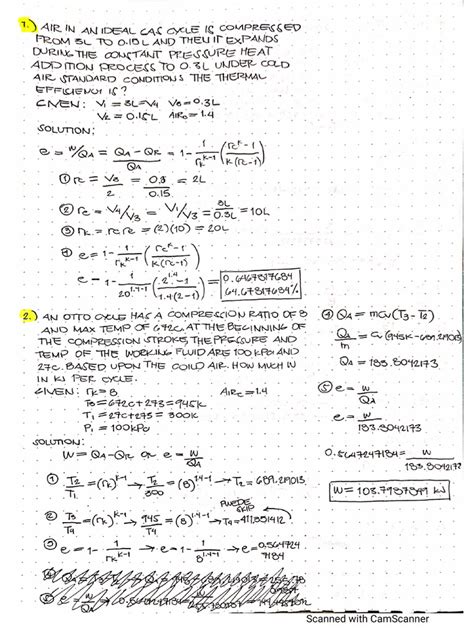 1.) AIR IN AN IDEAL GAS CYCLE IS COMPRESSED
FROM 3L TO 0.15L AND THEN IT EXPANDS
DURING THE CONSTANT PRESSURE HEAT
ADDITION PROCESS TO 0.3L UNDER COLD
AIR STANDARD CONDITIONS THE THERMAL
EFFICIENCY IS?
GIVEN: V₁ = 3L=V4 V3=0.3L
V₂ = 0.15L AIRk=1.4
SOLUTION:
e = W/QA = QA - QR / QA = 1 - 1/rk^k-1 (rc^k - 1 / k(rc-1))
① rc = V3/2 = 0.3/0.15 = 2L
② re = V4/V3 = V1/V3 = 3L/0.3L = 10L
③ rk = rc re = (2)(10) = 20L
④ e = 1 - 1/rk^k-1 (rc^k - 1 / k(rc-1))
e = 1 - 1/20^1.4-1 (2^1.4 - 1 / 1.4(2-1))
0.6467817684
64.67817684%
2.) AN OTTO CYCLE HAS A COMPRESSION RATIO OF 8
AND MAX TEMP OF 672C, AT THE BEGINNING OF
THE COMPRESSION STROKE, THE PRESSURE AND
TEMP OF THE WORKING FLUID ARE 100 KPa AND
27C. BASED UPON THE COILD AIR. HOW MUCH W
IN KJ PER CYCLE.
GIVEN: rk = 8 AIRk=1.4
T3 = 672C + 273 = 945K
T₁ = 27C + 273 = 300K
P₁ = 100KPa
SOLUTION:
W = QA - QR OR e = W/QA
① T2/T1 = (rk)^k-1 → T2/300 = (8)^1.4-1 → T2 = 689.219013
② T3/T4 = (rk)^k-1 → 945/T4 = (8)^1.4-1 → T4 = 411.3351412
PUEDE
SKIP
③ e = 1 - 1/rk^k-1 → e = 1 - 1/8^1.4-1 → e = 0.564724
7184
④ QA = mCv(T3 - T2)
QA/m = Cv(945K - 689.219013)
QA = 183.8042173
⑤ e = W/QA
e = W/183.8042173
0.5647247184 = W/183.8042173
W = 103.7987849 kJ
Scanned with CamScanner